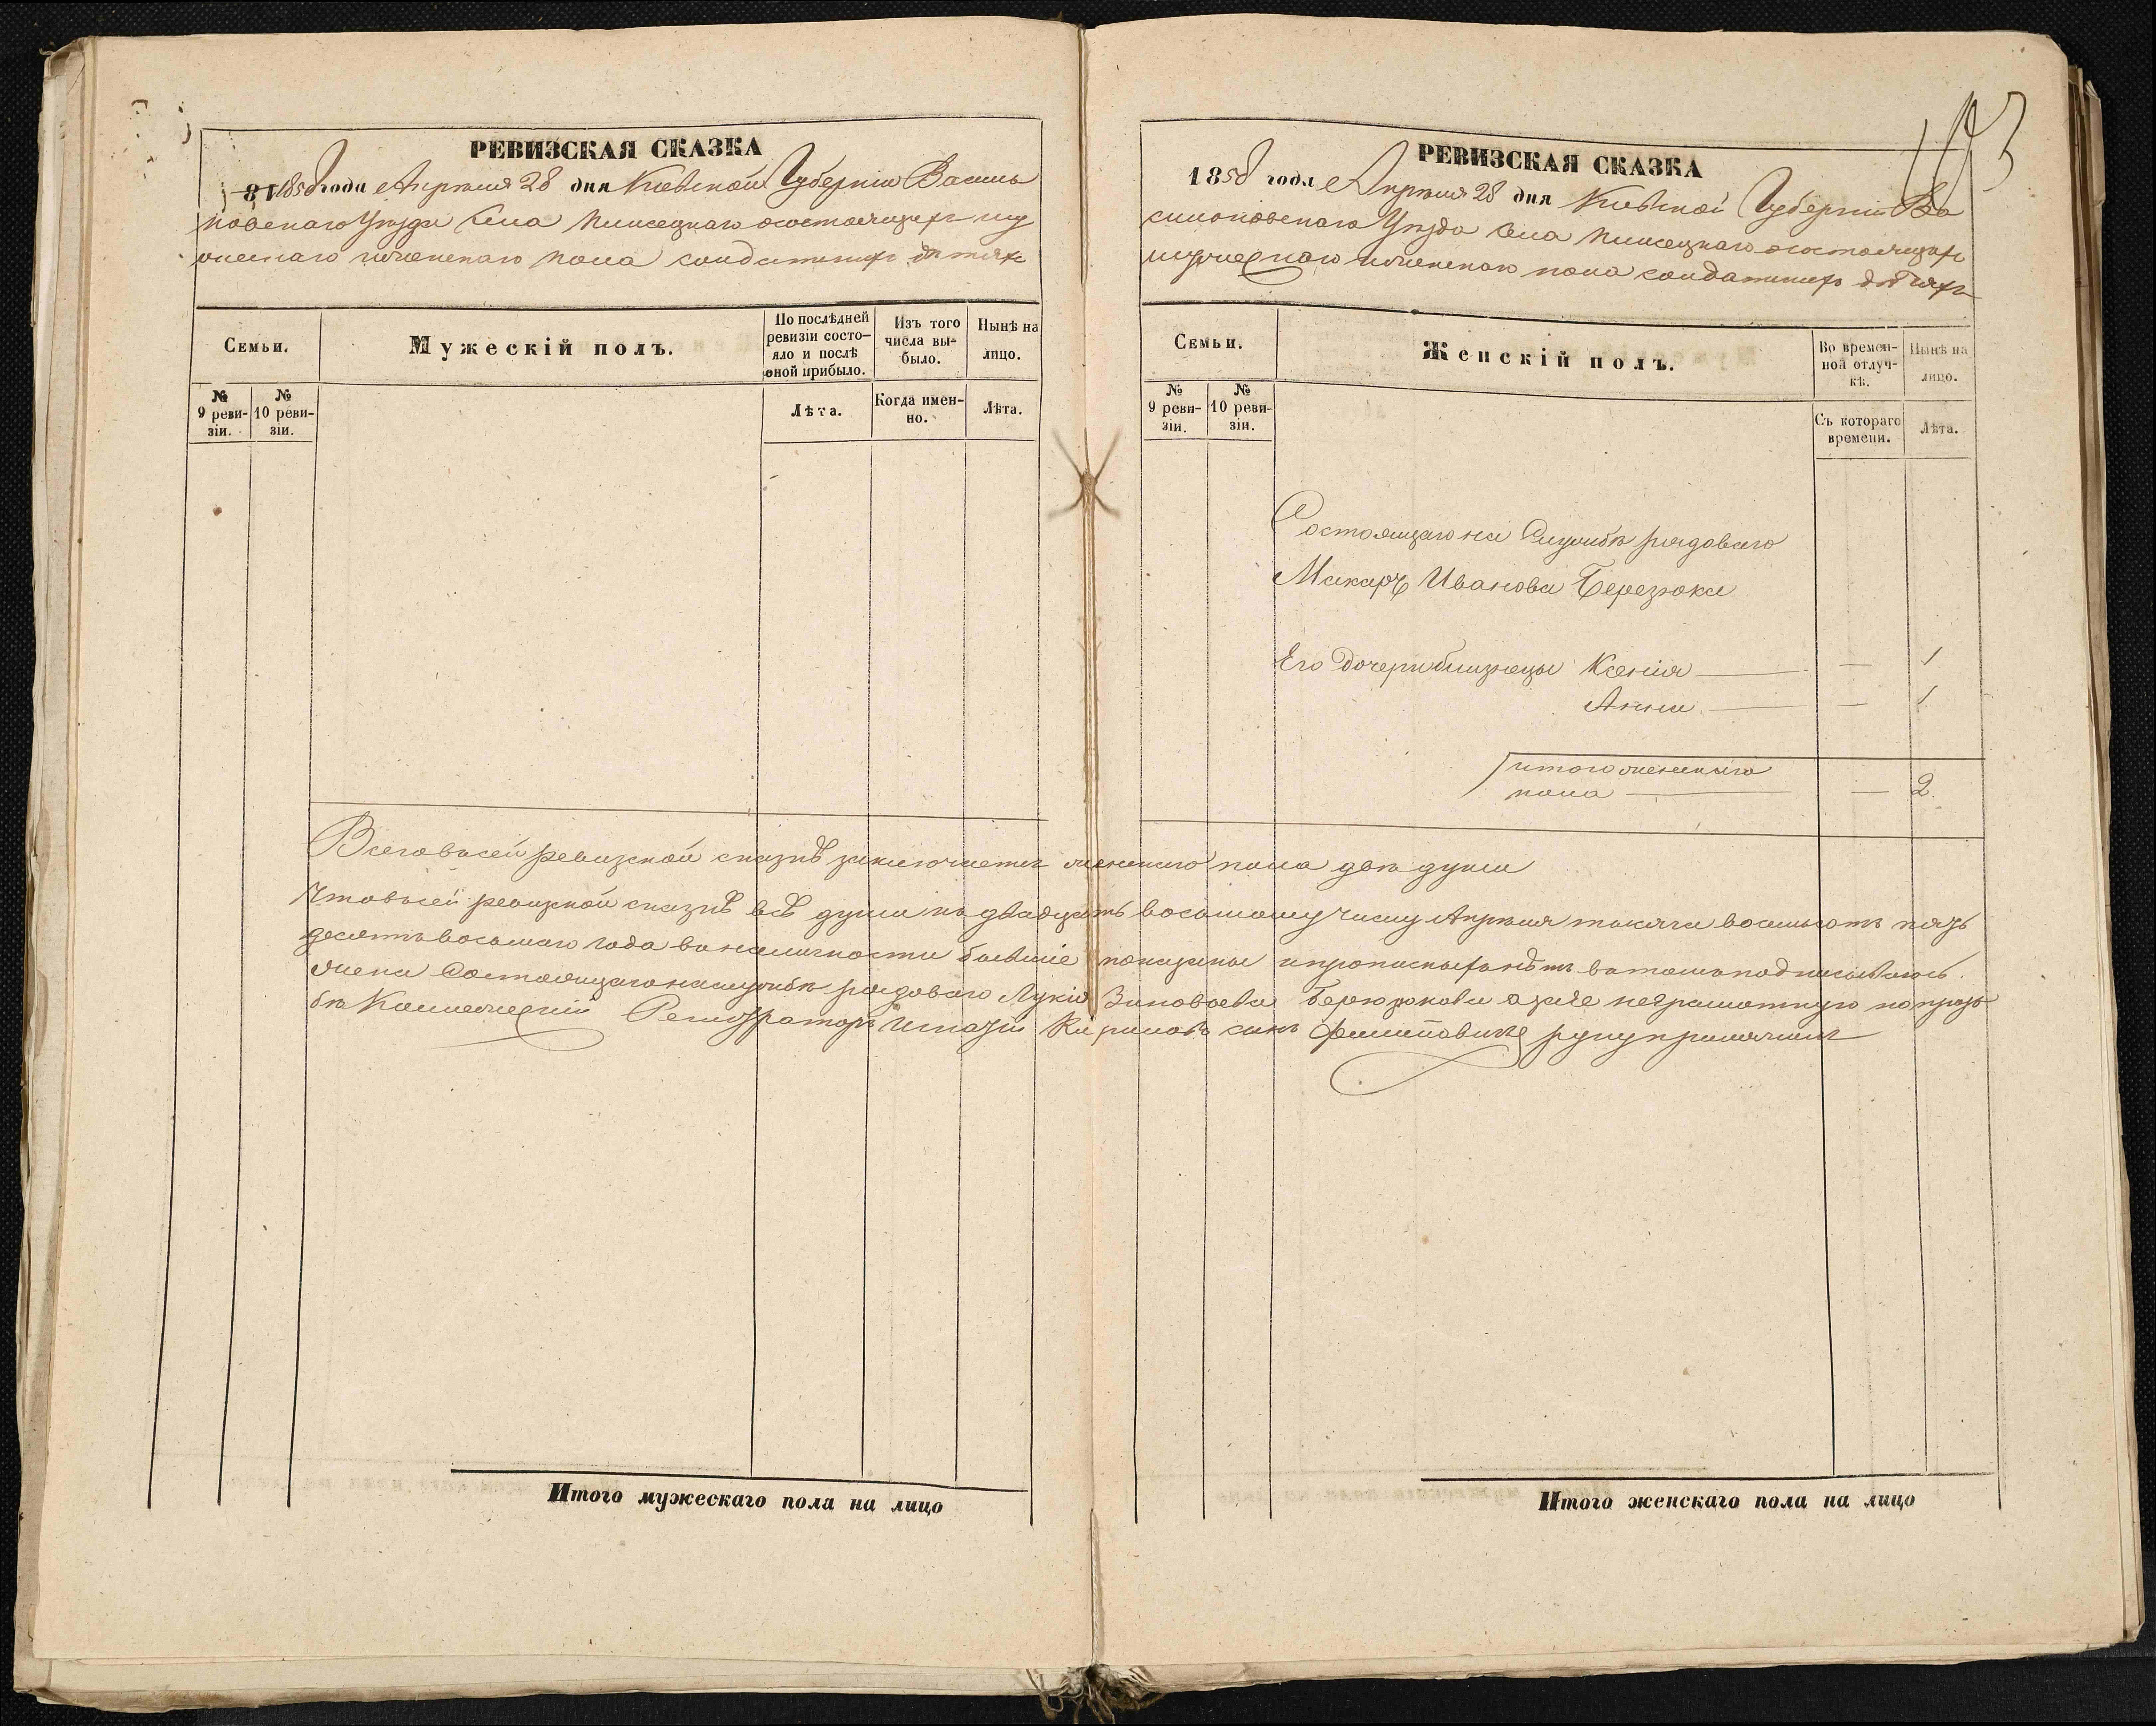 РЕВИЗСКАЯ СКАЗКА
1858 года Апрѣля 28 дня Кіевской Губерніи Василь
ковскаго Уѣзда Села о состоящихъ му
жескаго и женскаго пола солдатскихъ дѣтяхъ
Семьи.
Мужескій полъ.
По послѣдней ревизіи состо-
яло и послѣ оной прибыло.
Изъ того числа вы-
было.
Нынѣ на лицо.
№ 9 реви-
зіи.
№ 10 реви-
зіи.
Лѣта.
Когда имен-
но.
Лѣта.
Итого мужескаго пола на лицо
193
РЕВИЗСКАЯ СКАЗКА
1858 года Апрѣля 28 дня Кіевской Губерніи Ва
сильковскаго Уѣзда Села о состоящихъ
мужескаго и женскаго пола солдатскихъ дѣтяхъ
Семьи.
Женскій полъ.
Во времен-
ной отлуч-
кѣ.
Нынѣ на лицо.
№ 9 реви-
зіи.
№ 10 реви-
зіи.
Съ котораго времени.
Лѣта.
Состоящаго на Службѣ рядоваго
Макара Иванова Березюка
Его дочери близнецы Ксенія — — 1
Анна — — 1
Итого женскаго
пола — — 2.
Всего в сей ревизкой сказкѣ заключается женскаго пола двѣ души
Что в сей ревизкой сказкѣ всѣ души по двадцать восьмому числу Апрѣля тысяча восемьсотъ пять
десятъ восьмаго года в наличности бывшіе показаны и прописныхъ нѣтъ в томъ подписываюсь.
Жена Состоящаго на службѣ рядоваго Зиновьева а за нее неграмотную по прозь
бѣ Коллежскій Регистраторъ Игнатій Кириловъ сынъ руку приложилъ
Итого женскаго пола на лицо